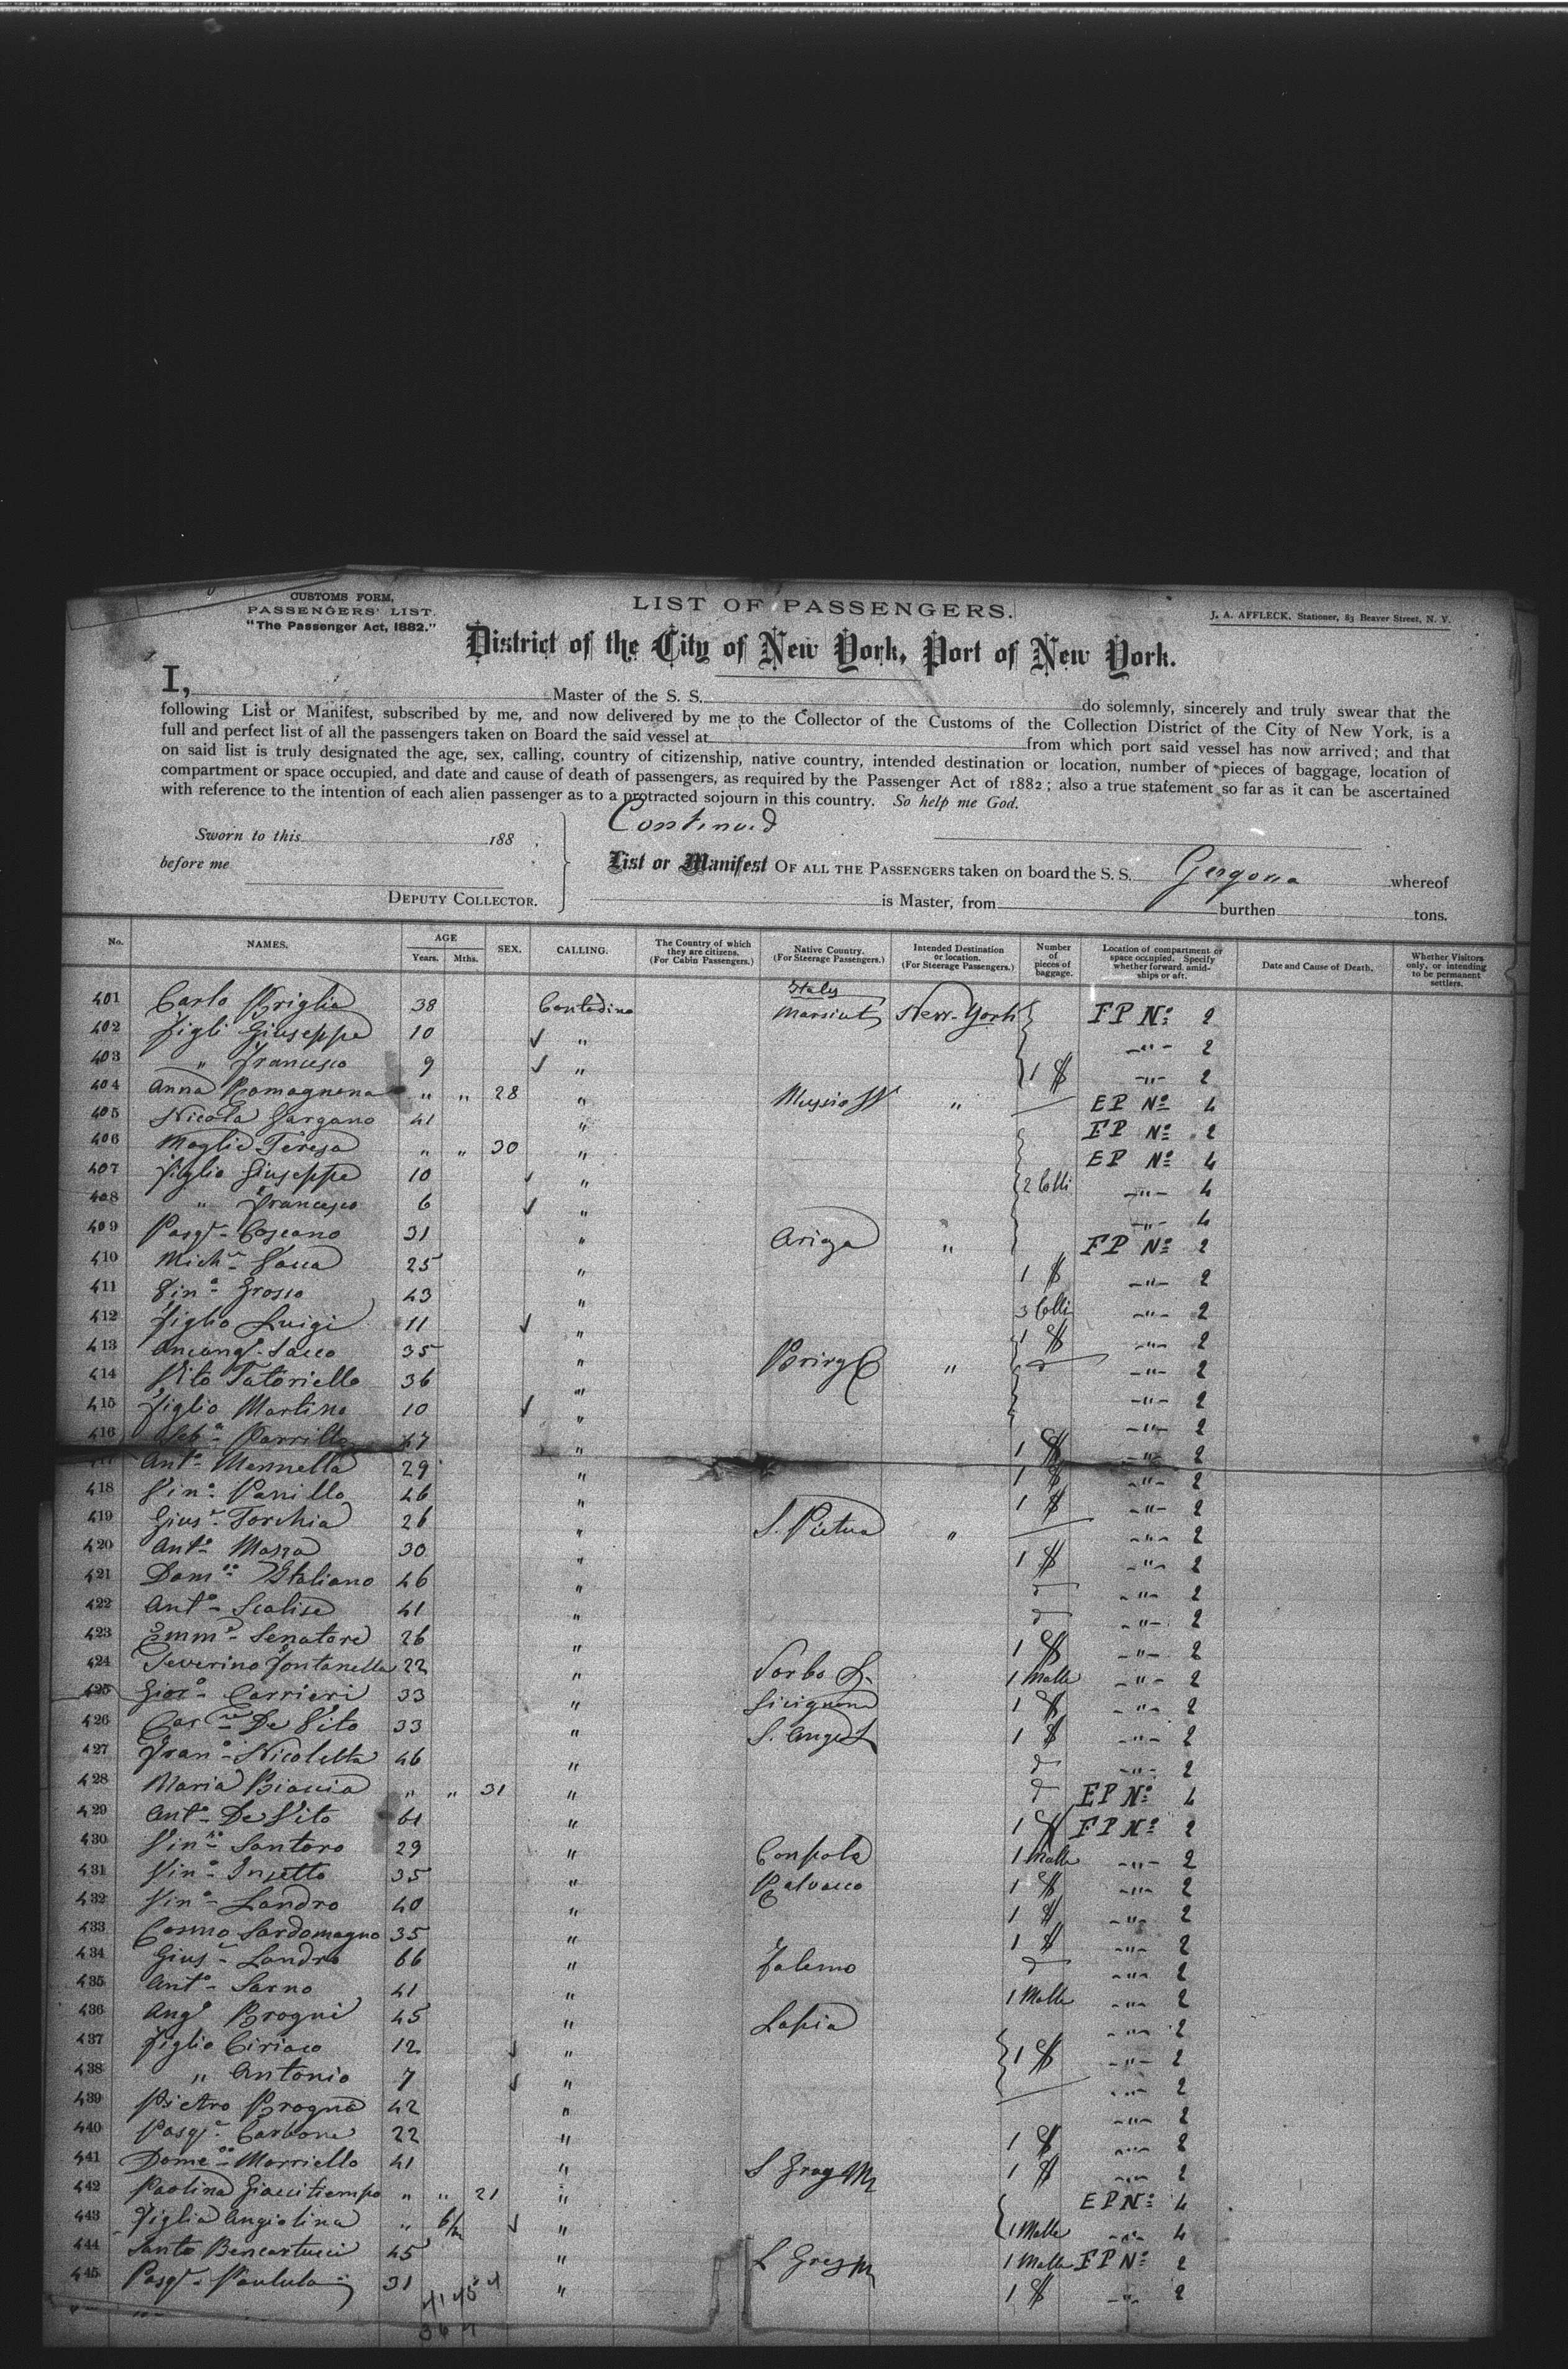 CUSTOMS FORM,
PASSENGERS' LIST.
"The Passenger Act, 1882."
LIST OF PASSENGERS.
J. A. AFFLECK, Stationer, 83 Beaver Street, N. Y.
District of the City of New York, Port of New York.
I, Master of the S. S. do solemnly, sincerely and truly swear that the
following List or Manifest, subscribed by me, and now delivered by me to the Collector of the Customs of the Collection District of the City of New York, is a
full and perfect list of all the passengers taken on Board the said vessel at from which port said vessel has now arrived; and that
on said list is truly designated the age, sex, calling, country of citizenship, native country, intended destination or location, number of pieces of baggage, location of
compartment or space occupied, and date and cause of death of passengers, as required by the Passenger Act of 1882; also a true statement so far as it can be ascertained
with reference to the intention of each alien passenger as to a protracted sojourn in this country. So help me God.
Continued
Sworn to this 188
before me
DEPUTY COLLECTOR.
List or Manifest OF ALL THE PASSENGERS taken on board the S. S. Gergona whereof
is Master, from burthen tons.
No. NAMES. AGE Years. Mths. SEX. CALLING. The Country of which they are citizens. (For Cabin Passengers.) Native Country. (For Steerage Passengers.) Intended Destination or location. (For Steerage Passengers.) Number of pieces of baggage. Location of compartment or space occupied. Specify whether forward, amidships or aft. Date and Cause of Death. Whether Visitors only, or intending to be permanent settlers.
Italy
401 Carlo Briglia 38 Contadino New-York FP Nº 2
402 Figli Giuseppe 10 " -"- 2
403 " Francesco 9 " 1 $ -"- 2
404 Anna Romagnena " " 28 " " EP Nº 4
405 Nicola Gargano 41 " FP Nº 2
406 Moglie Teresa " " 30 " EP Nº 4
407 Figlio Giuseppe 10 " 2 Colli -"- 4
408 " Francesco 6 " -"- 4
409 Pasqe Coscano 31 " Ariga " FP Nº 2
410 Miche Vacca 25 " 1 $ -"- 2
411 Vino Grosso 43 " 3 Colli -"- 2
412 Figlio Luigi 11 " 1 $ -"- 2
413 Sacco 35 " " -"- 2
414 Vito Tatoriello 36 " -"- 2
415 Figlio Martino 10 " -"- 2
416 Sebo Parrilla 47 " 1 $ -"- 2
Anto Mennella 29 " 1 $ -"- 2
418 Vino Panillo 46 " 1 $ -"- 2
419 Giuse Torchia 26 " S. Pietra " -"- 2
420 Anto Massa 30 " 1 $ -"- 2
421 Domco Italiano 46 " -"- 2
422 Anto Scalise 41 " -"- 2
423 Emme Senatore 26 " 1 $ -"- 2
424 Severino Fontanella 22 " Sorbo S. 1 Malle -"- 2
425 Gioso Carrieri 33 " Sicignano 1 $ -"- 2
426 Carne De Vito 33 " S. Angel 1 $ -"- 2
427 Frano Nicoletta 46 " -"- 2
428 Maria Biaccia " " 31 " EP Nº 4
429 Anto De Vito 61 " 1 $ FP Nº 2
430 Vinzo Santoro 29 " Conpola 1 Malle -"- 2
431 Vino Insetto 35 " Calvacco 1 $ -"- 2
432 Vino Landro 40 " 1 $ -"- 2
433 Cosmo Sardomagno 35 " 1 $ -"- 2
434 Giuse Landro 66 " Salerno -"- 2
435 Anto Sarno 41 " 1 Malle -"- 2
436 Ango Brogni 45 " Lapia -"- 2
437 Figlio Ciriaco 12 " 1 $ -"- 2
438 " Antonio 7 " -"- 2
439 Pietro Brogna 42 " -"- 2
440 Pasqe Carbone 22 " 1 $ -"- 2
441 Domeco Morriello 41 " S Greg M 1 $ -"- 2
442 Paolina Giaccitiempo " " 21 " EP Nº 4
443 Figlia Angiolina " 6/m " 1 Malle -"- 4
444 Santo Bencartucci 45 " S Greg M 1 Malle FP Nº 2
445 Pasqe Paulula 31 " 1 $ -"- 2